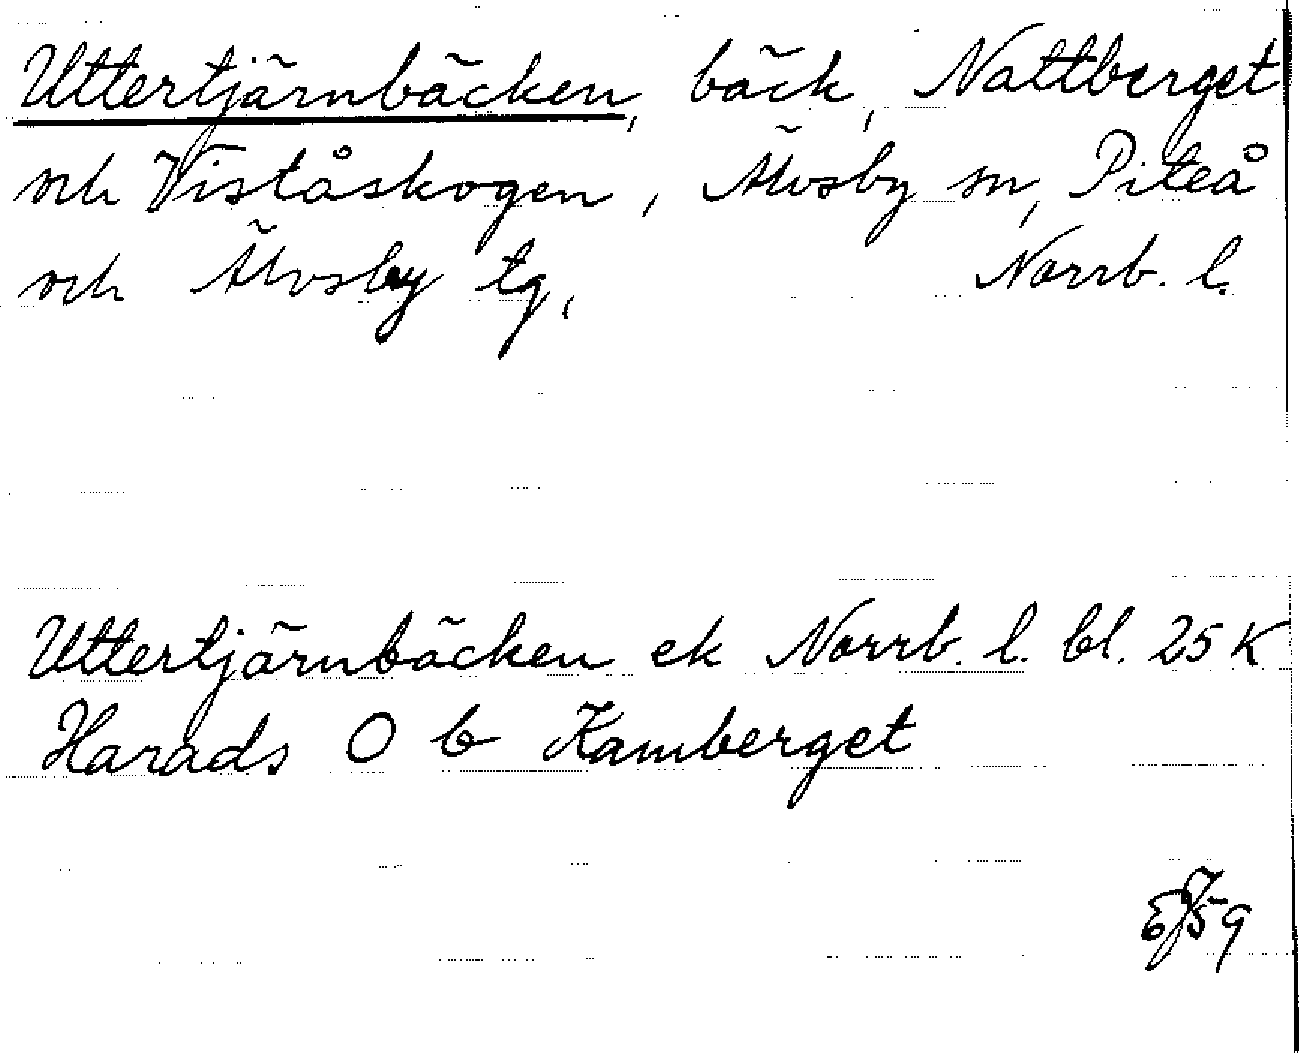 Uttertjärnbäcken, bäck, Nattberget
och Viståskogen, Älvsby sn, Piteå
och Älvsby tg, Norrb. l.
Uttertjärnbäcken ek Norrb. l. bl. 25 K
Harads O b Kamberget